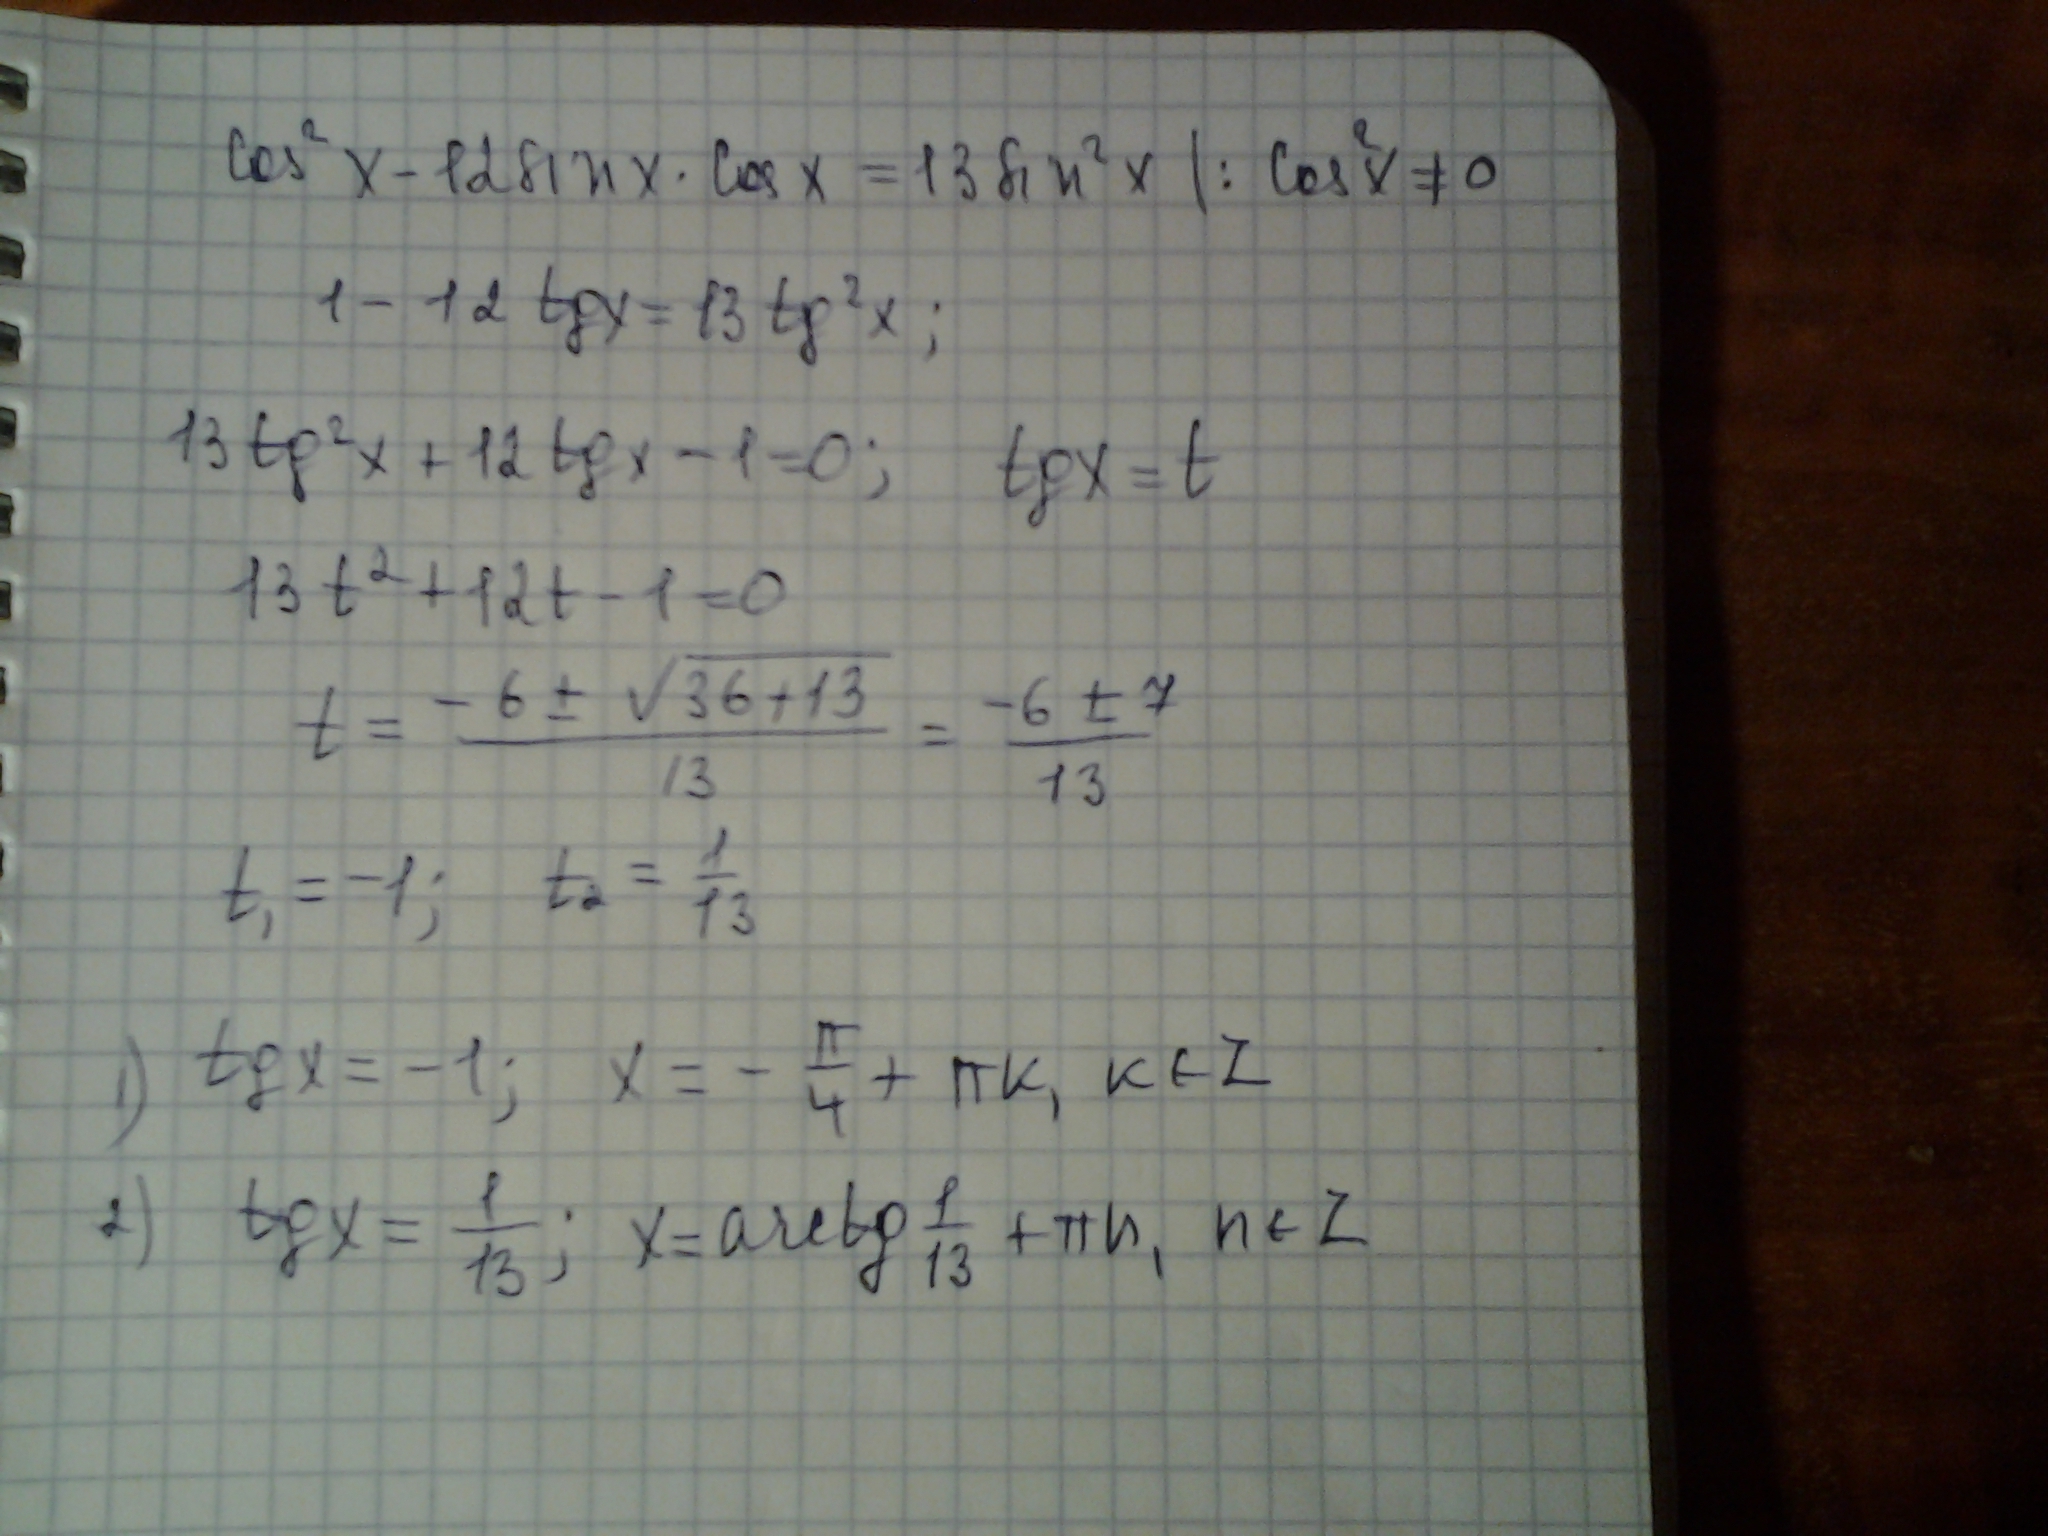 cos²x - 12 sin x · cos x = 13 sin²x |: cos²x ≠ 0
1 - 12 tg x = 13 tg²x;
13 tg²x + 12 tg x - 1 = 0; tg x = t
13t² + 12t - 1 = 0
t = (-6 ± √(36+13))/13 = (-6 ± 7)/13
t₁ = -1; t₂ = 1/13
1) tg x = -1; x = -π/4 + πk, k ∈ Z
2) tg x = 1/13; x = arctg 1/13 + πn, n ∈ Z